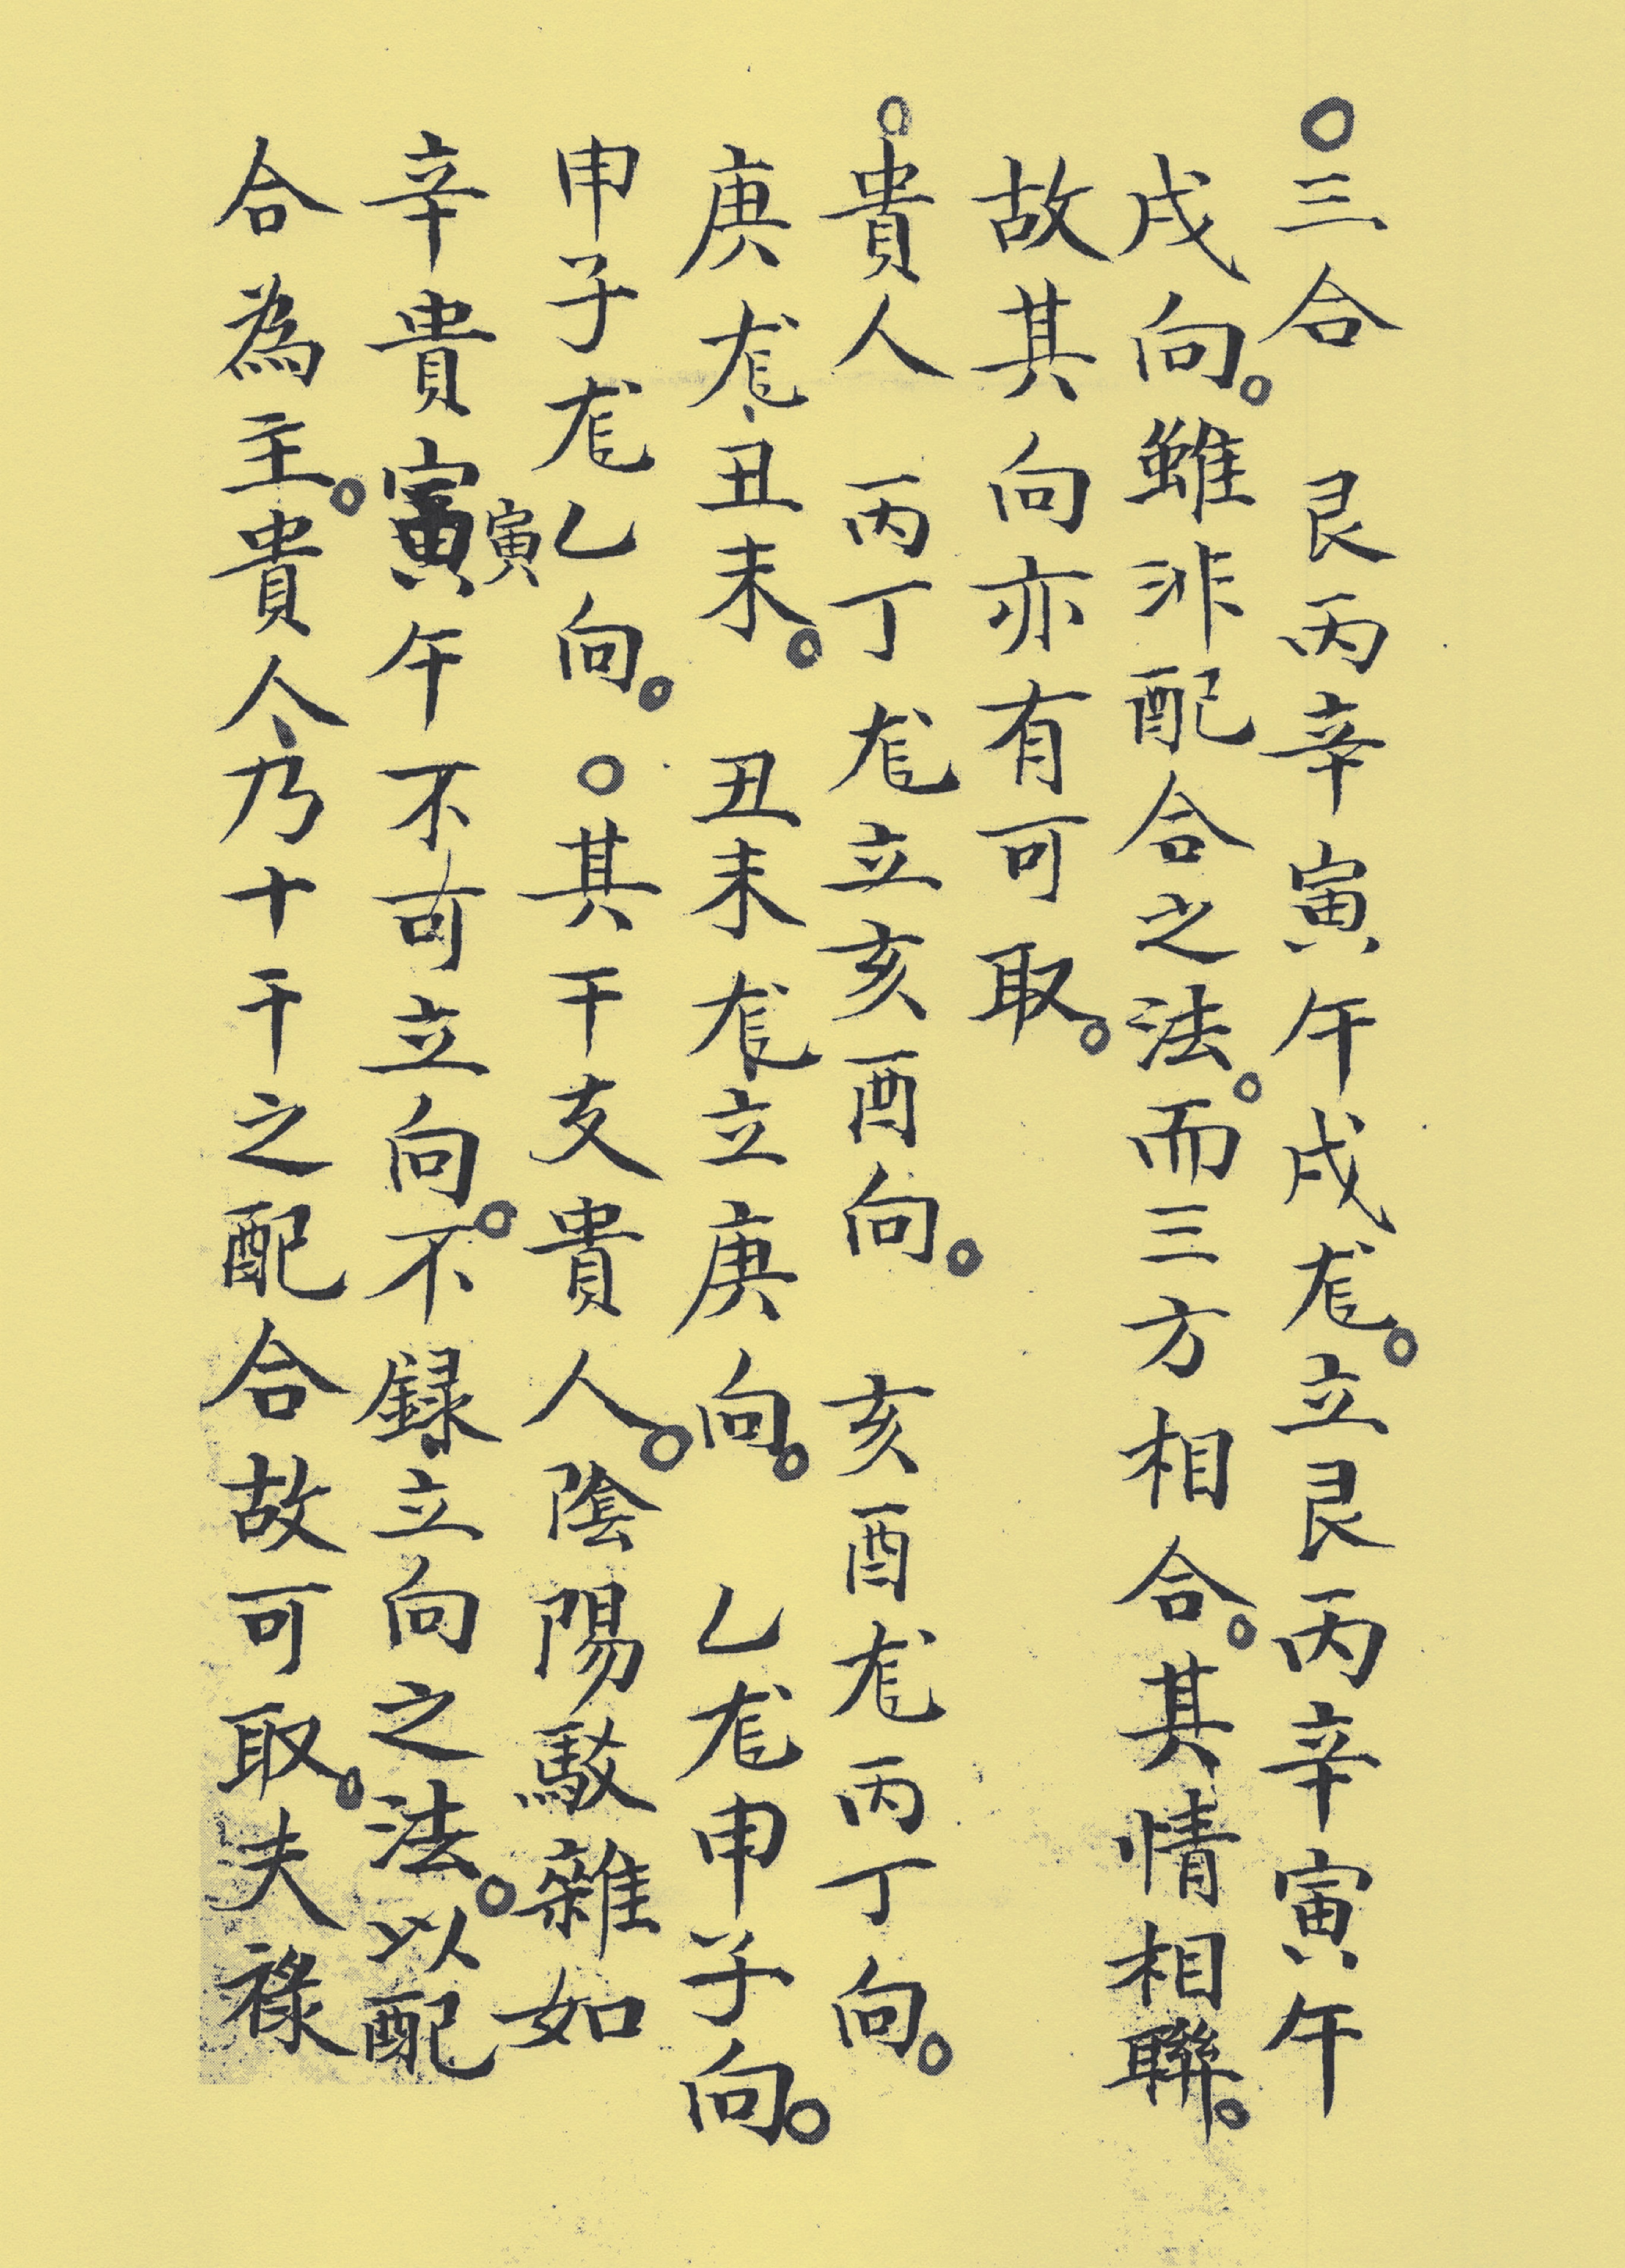 〇三合　艮丙辛寅午戌尨。立艮丙辛寅午
戌向。雖非配合之法。而三方相合。其情相聯。
故其向亦有可取。
〇貴人　丙丁尨立亥酉向。　亥酉尨丙丁向。
庚尨丑未。　丑未尨立庚向。　乙尨申子向。
申子尨乙向。　〇其干支貴人。陰陽駁雜如
辛貴寅午不可立向。不録立向之法。以配
寅
合為主。貴人乃十干之配合故可取。夫祿